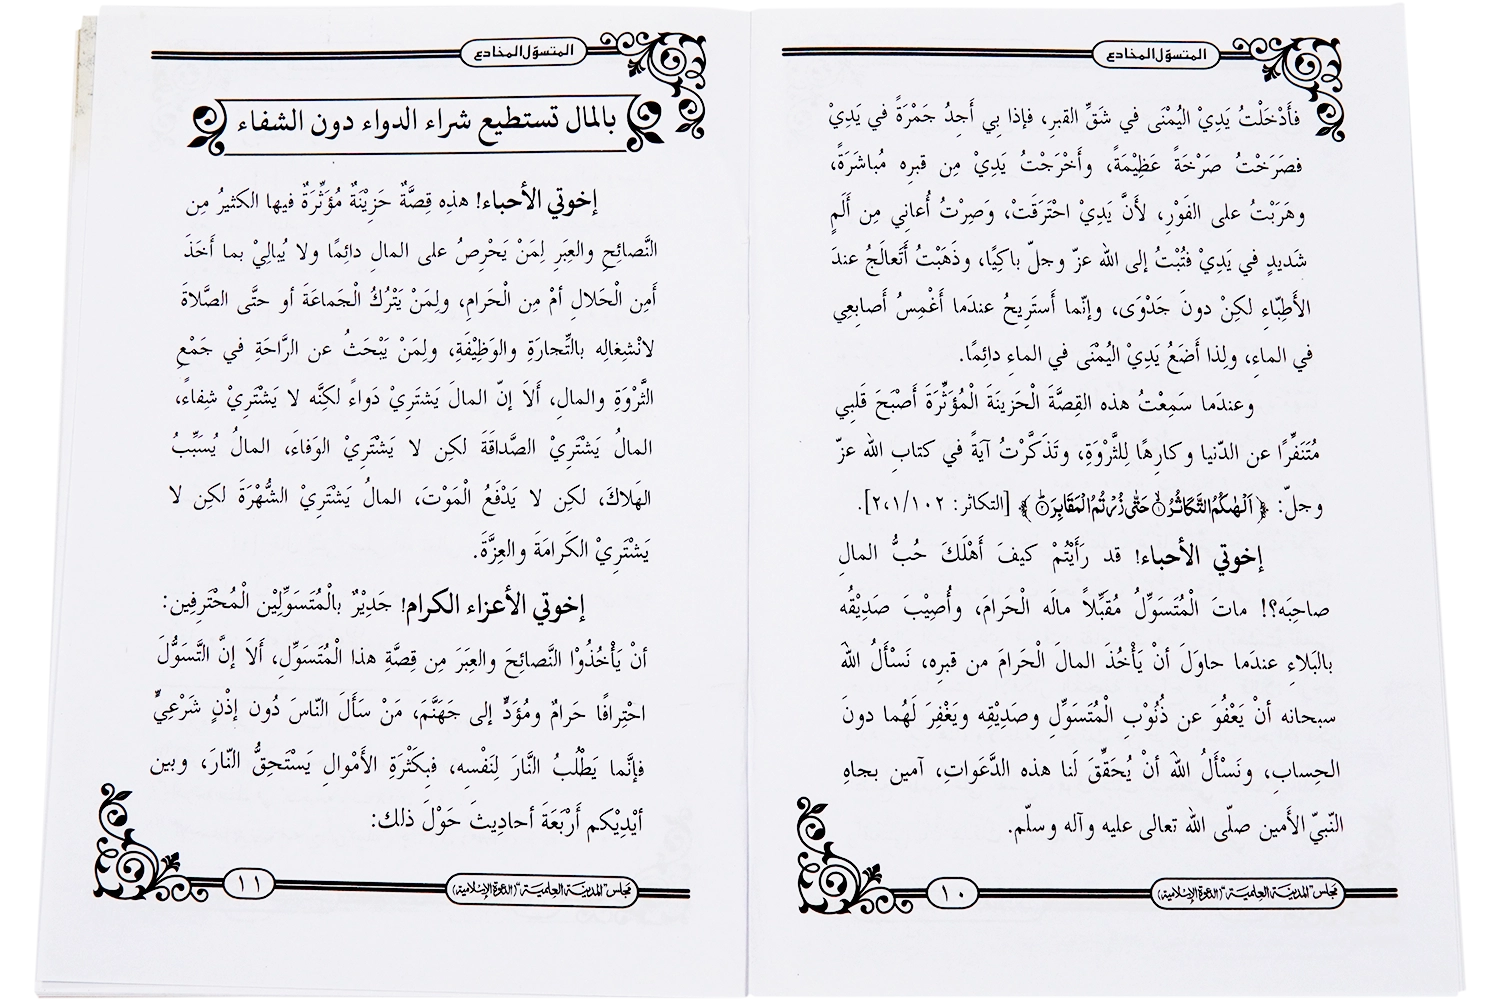 المتسوّل المخادع
فأَدْخَلْتُ يَدِيْ اليُمْنَى في شَقِّ القبرِ، فإذا بِي أَجِدُ جَمْرَةً في يَدِيْ
فصَرَخْتُ صَرْخَةً عَظِيْمَةً، وأَخْرَجْتُ يَدِيْ مِن قبرِه مُباشَرَةً،
وهَرَبْتُ على الفَوْرِ، لأَنَّ يَدِيْ احْتَرَقَتْ، وَصِرْتُ أُعانِي مِن أَلَمٍ
شَديدٍ في يَدِيْ فتُبْتُ إلى الله عزّ وجلّ باكِيًا، وذَهَبْتُ أَتَعالَجُ عندَ
الأَطِبّاءِ لكِنْ دونَ جَدْوَى، وإنّما أَستَرِيحُ عندَما أَغْمِسُ أَصابِعِي
في الماءِ، ولِذا أَضَعُ يَدِيْ اليُمْنَى في الماءِ دائِمًا.
وعندَما سَمِعْتُ هذه القِصَّةَ الْحَزِينَةَ الْمُؤَثِّرَةَ أَصْبَحَ قَلبِي
مُتَنَفِّرًا عن الدّنيا وكارِهًا لِلثَّرْوَةِ، وتَذَكَّرْتُ آيَةً في كتابِ الله عزّ
وجلّ: ﴿اَلْهٰىكُمُ التَّكَاثُرُ ۙ۱ حَتّٰى زُرْتُمُ الْمَقَابِرَ ؕ۲﴾ [التكاثر: ١٠٢/٢،١].
إخوتي الأحباء! قد رَأَيْتُمْ كيفَ أَهْلَكَ حُبُّ المالِ
صاحِبَه؟! ماتَ الْمُتَسَوِّلُ مُقبِّلاً مالَه الْحَرامَ، وأُصِيْبَ صَدِيْقُه
بالبَلاءِ عندَما حاوَلَ أنْ يَأْخُذَ المالَ الْحَرامَ من قبرِه، نَسْأَلُ اللهَ
سبحانه أنْ يَعْفُوَ عن ذُنُوْبِ الْمُتَسَوِّلِ وصَدِيْقِه ويَغْفِرَ لَهُما دونَ
الحِسابِ، ونَسْأَلُ اللهَ أنْ يُحَقِّقَ لَنا هذه الدَّعَواتِ، آمين بجاهِ
النّبيّ الأَمين صلّى الله تعالى عليه وآله وسلّم.
مجلس "المدينة العلمية" (الدعوة الإسلامية)
١٠
المتسوّل المخادع
بالمال تستطيع شراء الدواء دون الشفاء
إخوتي الأحباء! هذِه قِصَّةٌ حَزِيْنَةٌ مُؤَثِّرَةٌ فيها الكثيرُ مِن
النَّصائِحِ والعِبَرِ لِمَنْ يَحْرِصُ على المالِ دائِمًا ولا يُبالِيْ بما أَخَذَ
أَمِن الْحَلالِ أمْ مِن الْحَرامِ، ولِمَنْ يَتْرُكُ الْجَماعَةَ أو حتَّى الصَّلاةَ
لانْشِغالِه بالتِّجارَةِ والوَظِيْفَةِ، ولِمَنْ يَبْحَثُ عن الرَّاحَةِ في جَمْعِ
الثَّرْوَةِ والمالِ، أَلاَ إنّ المالَ يَشتَرِيْ دَواءً لكِنَّه لا يَشْتَرِيْ شِفاءً،
المالُ يَشْتَرِيْ الصَّداقَةَ لكِن لا يَشْتَرِيْ الوَفاءَ، المالُ يُسَبِّبُ
الهَلاكَ، لكِن لا يَدْفَعُ الْمَوْتَ، المالُ يَشْتَرِيْ الشُّهْرَةَ لكِن لا
يَشْتَرِيْ الكَرامَةَ والعِزَّةَ.
إخوتي الأعزاء الكرام! جَدِيْرٌ بالْمُتَسَوِّلِيْن الْمُحْتَرِفِين:
أنْ يَأْخُذُوْا النَّصائِحَ والعِبَرَ مِن قِصَّةِ هذا الْمُتَسَوِّلِ، أَلاَ إنَّ التَّسَوُّلَ
احْتِرافًا حَرامٌ ومُؤَدٍّ إلى جَهَنَّمَ، مَنْ سَأَلَ النّاسَ دُون إذْنٍ شَرْعِيٍّ
فإنَّما يَطْلُبُ النَّارَ لِنَفْسِه، فبِكَثْرَةِ الأَمْوالِ يَسْتَحِقُّ النّارَ، وبين
أَيْدِيْكم أَرْبَعَةَ أحادِيثَ حَوْلَ ذلك:
مجلس "المدينة العلمية" (الدعوة الإسلامية)
١١